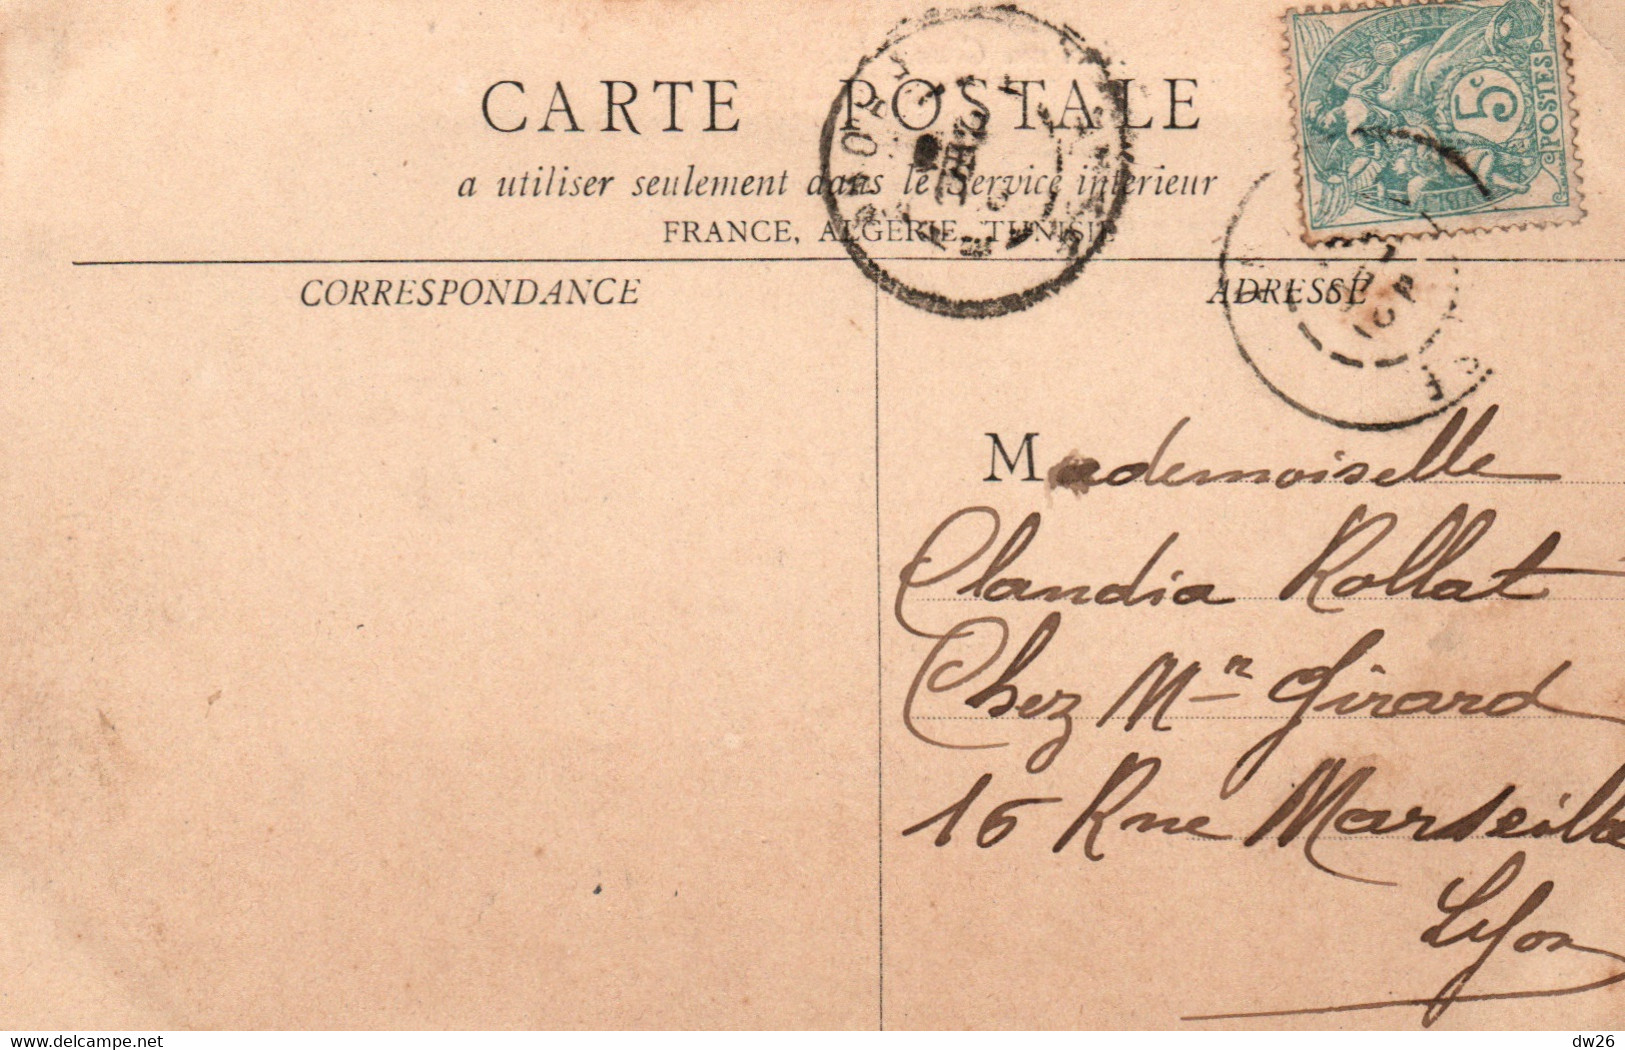 CARTE POSTALE
a utiliser seulement dans le Service intérieur
FRANCE, ALGÉRIE, TUNISIE
5c
POSTES
CORRESPONDANCE
ADRESSE
Mademoiselle
Claudia Rollat
Chez Mr Girard
16 Rue Marseille
Lyon
www.delcampe.net
dw26